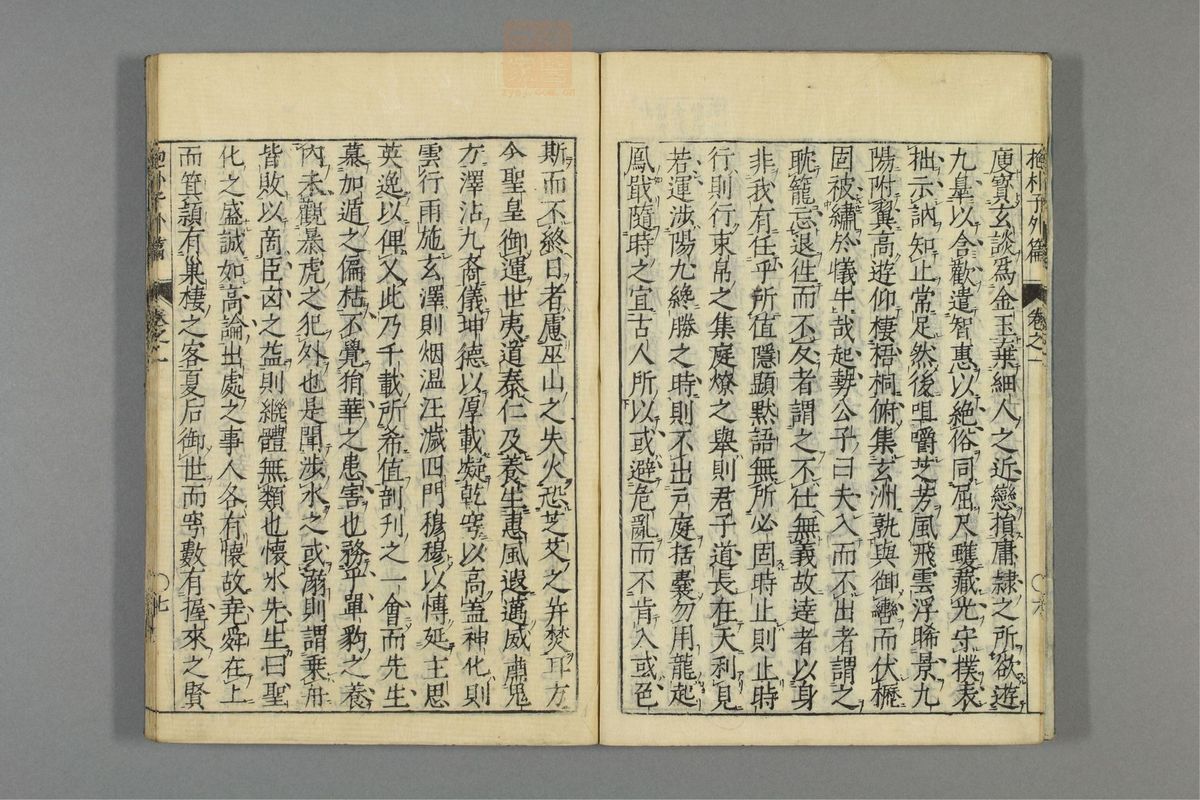 抱朴子外篇 卷之一 〇六
庾寶玄談爲金玉棄細人之近戀捐庸隸之所欲遊
九皐以含歡遣智惠以絶俗同屈尺蠖藏光守樸表
拙示訥知止常足然後咀嚼芝芳風飛雲浮晞景九
陽附翼高遊仰棲梧桐俯集玄洲孰與御轡而伏櫪
同被繡於犧牛哉赴勢公子曰夫入而不出者謂之
耽寵忘退往而不反者謂之不仕無義故達者以身
非我有任乎所值隱顯默語無所必固時止則止時
行則行束帛之集庭燎之舉則君子道長在天利見
若運涉陽九讒勝之時則不出戸庭括囊勿用龍起
鳳戢隨時之宜古人所以或避危亂而不肯入或色
斯而不終日者慮巫山之失火恐芝艾之并焚耳方
今聖皇御運世夷道泰仁及養生惠風遐邁威肅鬼
方澤沾九裔儀坤德以厚載擬乾穹以高蓋神化則
雲行雨施玄澤則烟溫汪濊四門穆穆以博延主思
英逸以俾乂此乃千載所希值剖判之一會而先生
慕加遁之偏枯不覺狷華之患害也務乎單豹之養
内未覩暴虎之犯外也是聞涉水之或溺則謂乗舟
皆敗以商臣凶之益則繼體無類也懷氷先生曰聖
化之盛誠如高論出處之事人各有懷故尭舜在上
而箕潁有巢棲之客夏后御世而窮藪有握耒之賢
抱朴子外篇 卷之一 〇七